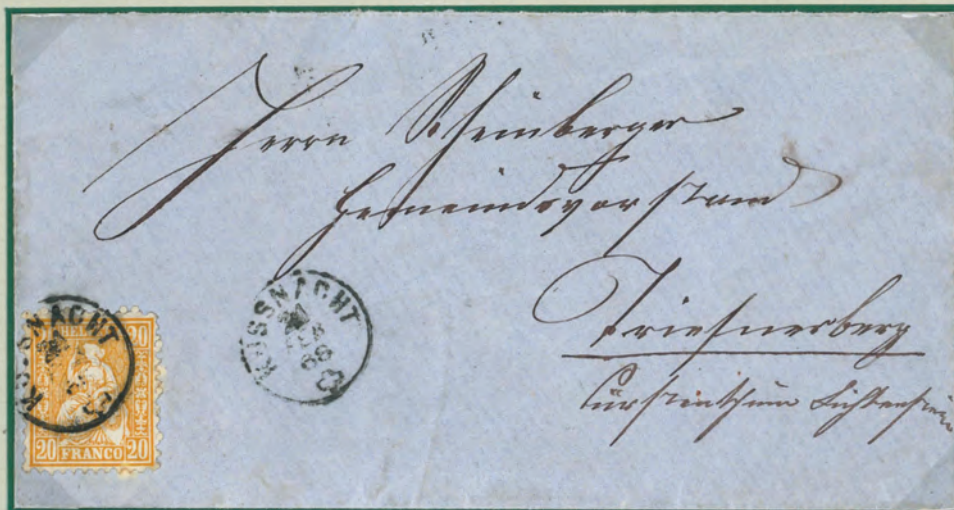 Herrn Scheinberger
Gemeindsvorstand
Triesnerberg
Fürstenthum Lichtenstein
KÜSSNACHT
KÜSSNACHT
66
HEL
20 20
20 FRANCO 20